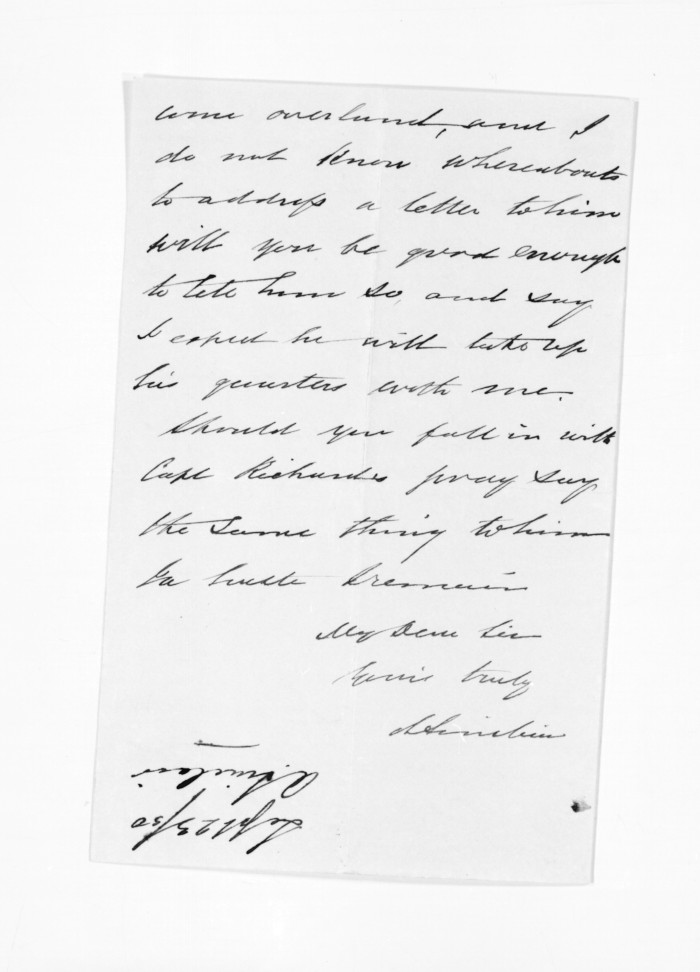 come overland, and I
do not know whereabouts
to address a letter to him
will you be good enough
to tell him so, and say
I expect he will take up
his quarters with me.
Should you fall in with
Capt Richards pray say
the same thing to him
In haste I remain
My Dear Sir
Yours truly
Sept 23/50